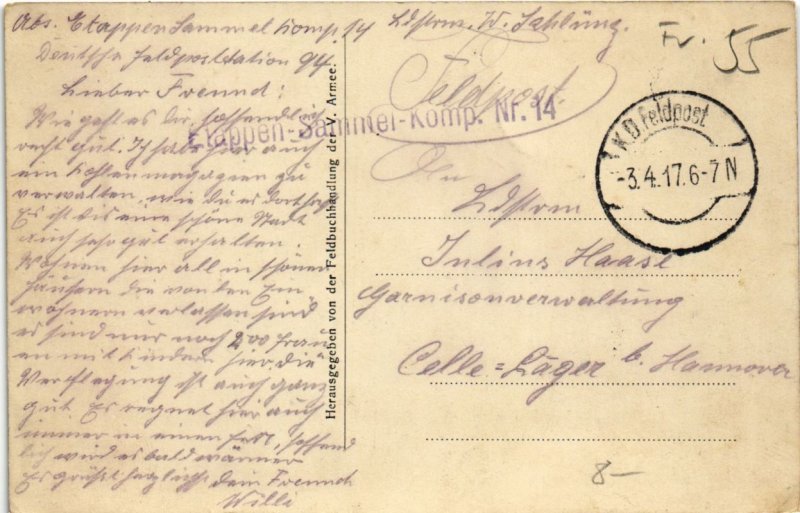 Abs. Etappen Sammel Komp. 14 Ldstrm. W. Sahlüng.
Deutsche Feldpoststation 94.
Lieber Freund:
Wie geht es dir, hoffendlich
recht gut. Ich habe hier auch
ein Kohlenmagazien zu
verwalten, wie du es dort hast
Es ist dis eine schöne Stadt
auch sehr gut erhalten.
Wohnen hier all in schönen
Häusern die von den Ein
wohnern verlassen sind
es sind nur noch 200 Frau
en mit Kindern hier, die
Verflegung ist auch ganz
gut. Es regnet hier auch
immer in einen fort, hoffend
lich wird es bald wärmer
Es grüßt herzlichst dein Freund
Willi
Herausgegeben von der Feldbuchhandlung der V. Armee.
Fr. 55
Feldpost.
Etappen-Sammel-Komp. Nr. 14
K.D. Feldpost
-3.4.17.6-7N
An
Ldstrm
Julius Haase
Garnisonverwaltung
Celle=Läger b. Hannover
8-